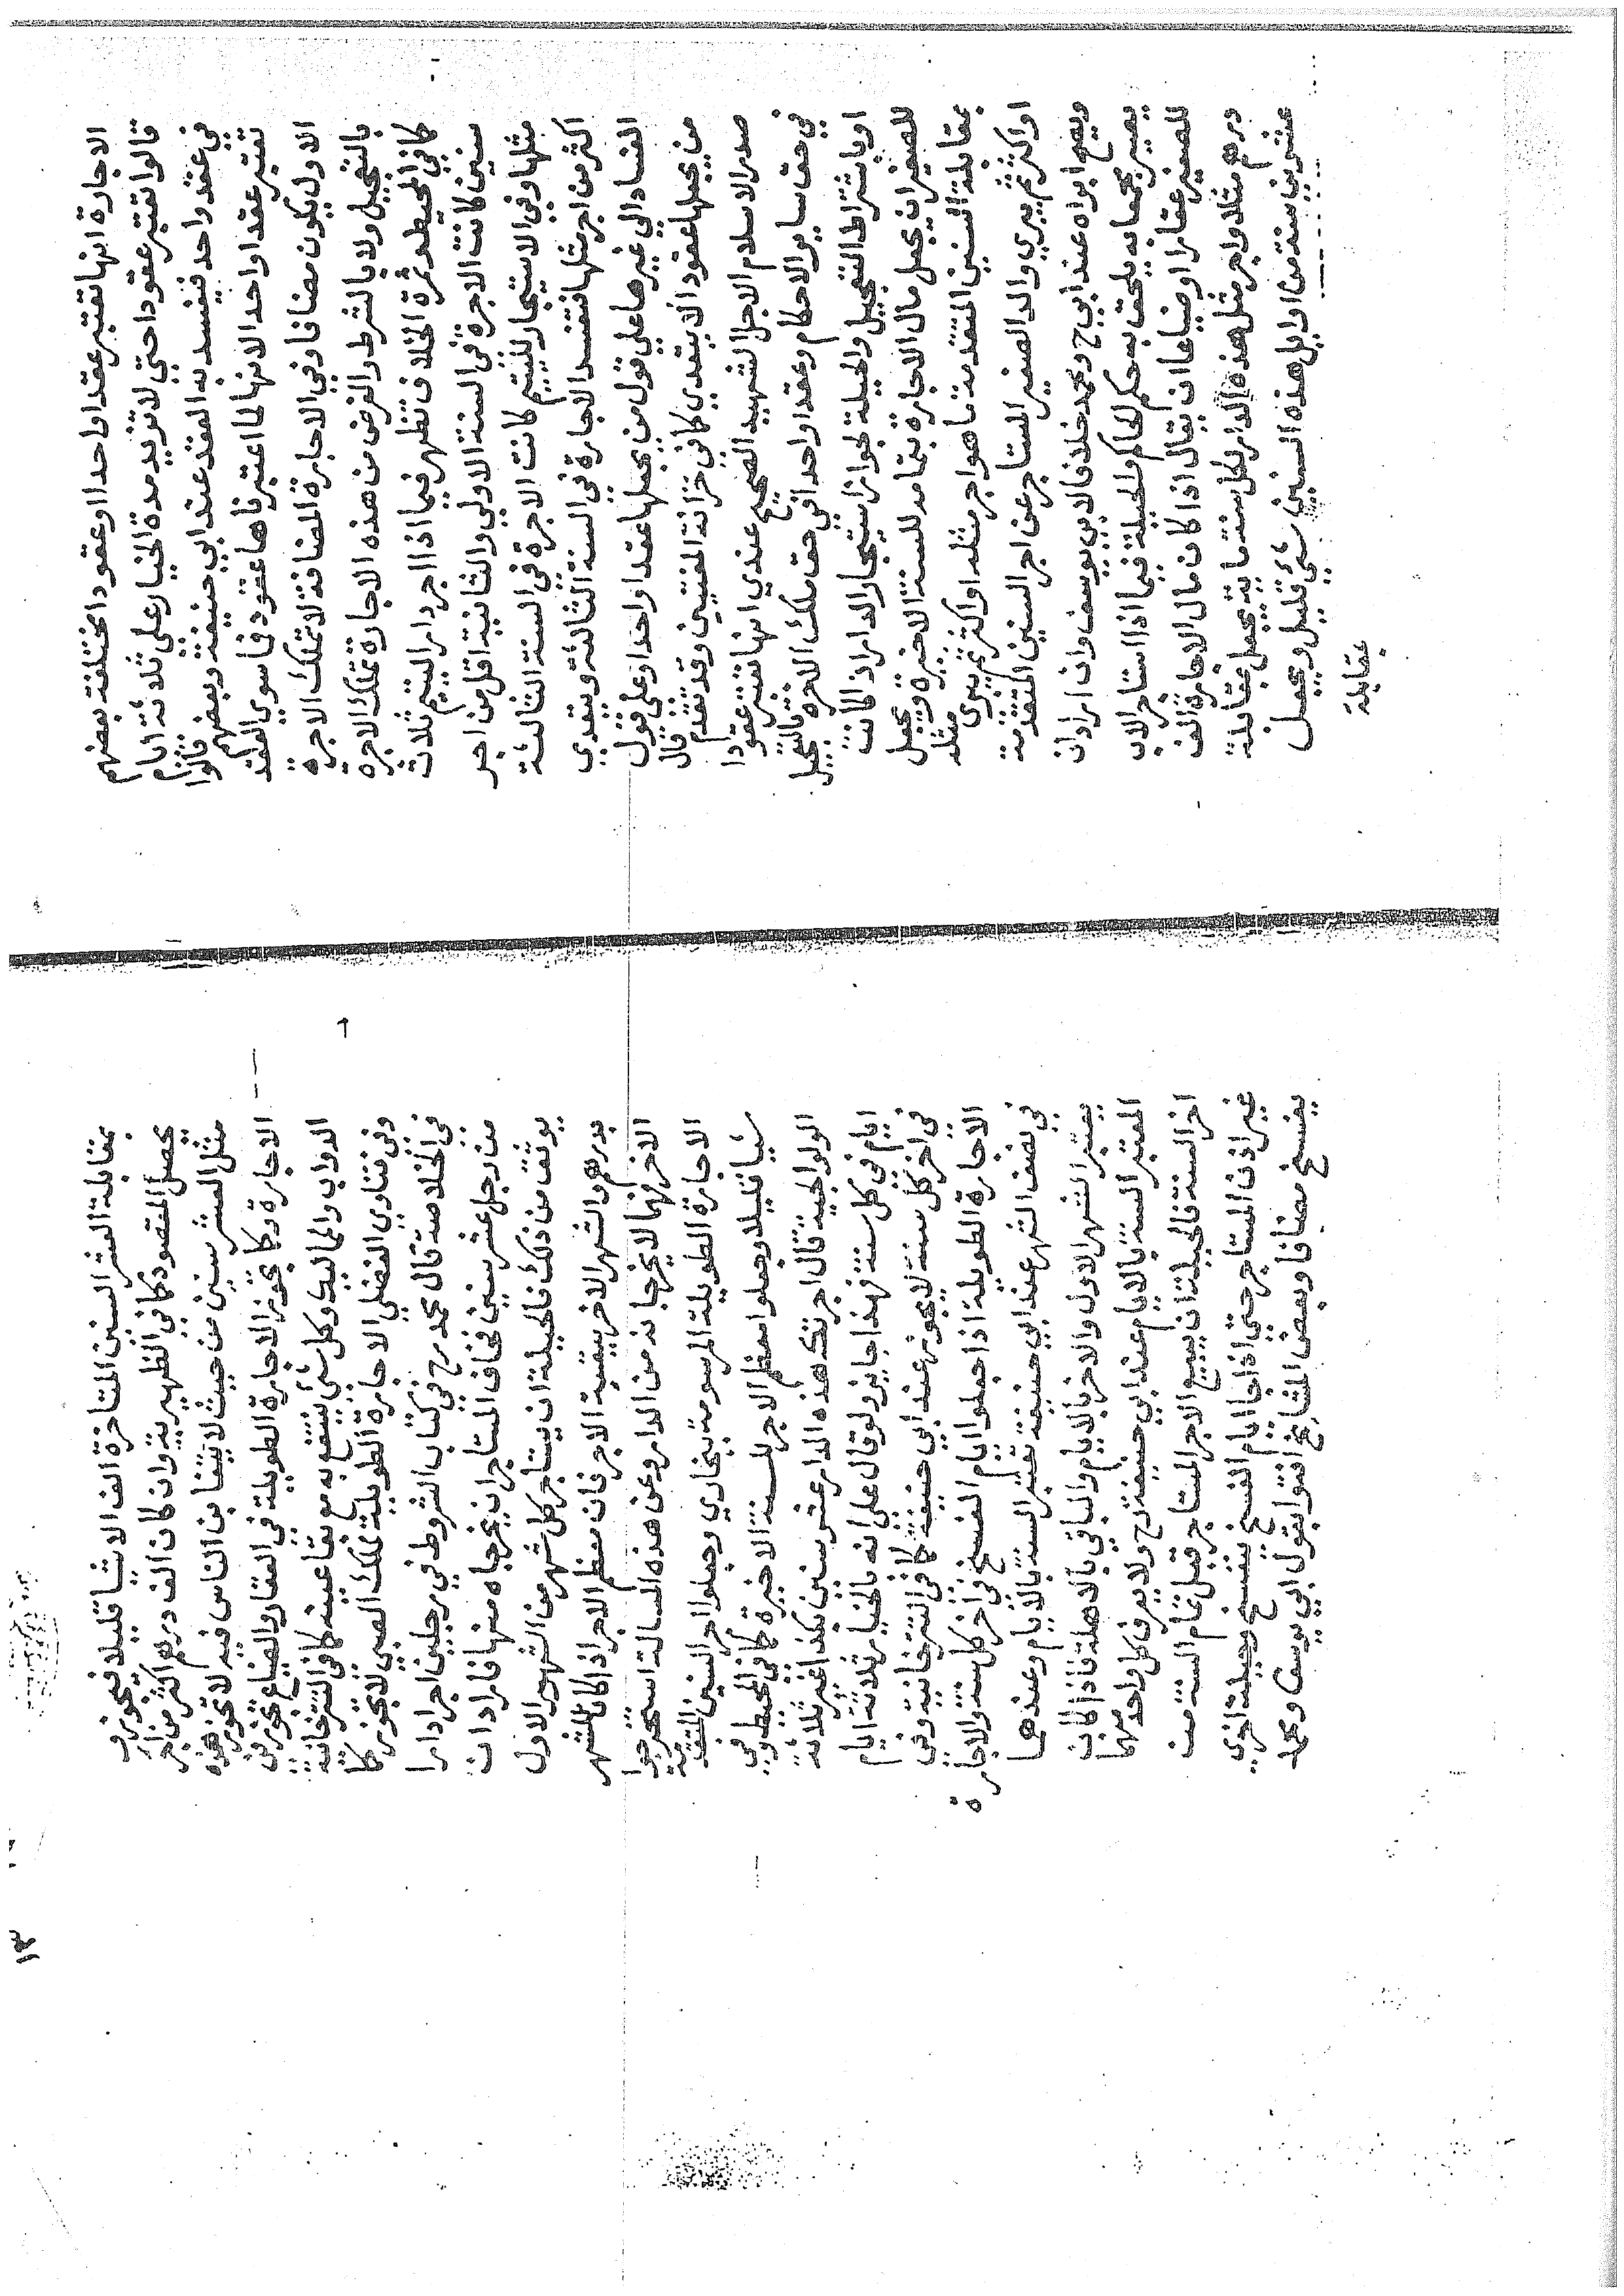 الاجارة انها تعتبر عقدا واحدا او عقودا مختلفة بعضهم
قالوا تعتبر عقودا حتي لا تزيد مدة الخيار علي ثلاثة ايام
في عقد واحد فيفسد به العقد عند ابي حنيفة وبعضهم قالوا
تعتبر عقدا واحدا لانها لما اعتبرناها عقود فما سوي العقد
الاول يكون مضافا وفي الاجارة المضافة لا تملك الاجرة
بالتعجيل ولا بالشرط والغرض من هذه الاجارة تملك الاجرة
كما في المحيط وثمرة الخلاف تظهر فيما اذا اجر دار اليتيم ثلاث
سنين كانت الاجرة في السنة الاولي والثانية اقل من اجر
مثلها وفي الاستيجار لليتيم كانت الاجرة في السنة الثالثة
اكثر من اجر مثلها فتفسد الاجارة في السنة الثالثة ويتعدي
الفساد الي غيرها علي قول من يجعلها عقدا واحدا وعلي قول
من يجعلها عقودا لا يتعدي كما في خزانة المفتيين وقد تقدم قال
صدر الاسلام الاجل الشهيد الصحيح عندي انها تعتبر عقودا
في حق ساير الاحكام وعقدا واحدا في حق ملك الاجرة بالتعجيل
او باشتراط التعجيل والحيلة لجواز استيجار الدار اذا كانت
للصغير ان يجعل مال الاجارة بتمامه للسنة الاخيرة ويجعل
بمقابلة السنين المتقدمة ما هو اجر مثله او اكثر ثم يبري مثله
او اكثر ثم يبري والد الصغير المستاجر عن اجر السنين المتقدمة
ويصح ابراه عند ابي ح ومحمد خلافا لابي يوسف وان اراد ان
يصير مجمعا به يلحق به حكم الحاكم والحيلة فيما اذا استاجر الاب
للصغير عقارا او ضياعا ان يقال اذا كان مال الاجارة الف
درهم مثلا واجر مثل هذه الدار لكل سنة ماية يجعل بمقابلة
عشرين سنة من اوايل هذه السنين شئ قليل ويجعل
بمقابلة
بمقابلة العشر السنين المتاخرة الف الا شيا قليلا فيجوز و
يحصل المقصود كما في الظهيرية وان كان الف درهم اكثر من اجر
مثل العشر سنين من حيث لا يتغابن الناس فيه لا تجوز هذه
الاجارة وكما تجوز الاجارة الطويلة في العقار والضياع تجوز في
الدواب والمماليك وكل شئ ينتفع به مع بقا عينه كما في التترخانية
وفي فتاوي الفضلي الاجارة الطويلة تملك الصبي لا تجوز كما
في الخلاصة قال محمد رح في كتاب الشروط في رجلين اجرا دارا
من رجل عشر سنين فخاف المستاجر ان يخرجاه منها فارادا ان
يوثق من ذلك فالحيلة ان يستاجر كل شهر من الشهور الاول
بدرهم والشهر الاخر ببقية الاجر فان معظم الاجر اذا كان للشهر
الاخر فهما لا يخرجانه من الدار وعن هذه المسالة استخرجوا
الاجارة الطويلة المرسومة ببخاري وجعلوا اجر السنين المتقدمة
شيا قليلا وجعلوا معظم الاجر للسنة الاخيرة كما في المحيط وفي
الولوالجية قال اجرتك هذه الدار عشر سنين بكذا غير ثلاثة
ايام في كل سنة فهذا جايز ولو قال علي انه بالخيار ثلاثة ايام
في اخر كل سنة لا يجوز عند ابي حنيفة كما في التترخانية وفي
الاجارة الطويلة اذا جعلوا ايام الفسخ في اخر كل سنة والاجارة
في نصف الشهر عند ابي حنيفة تعتبر السنة بالايام وعندهما
يعتبر الشهر الاول والاخر بالايام والباقي بالاهلة فاذا كان
المعتبر السنة بالايام عند ابي حنيفة رح ولا يعرف كل واحد منهما
اخر السنة فالحيلة ان يبيع الاجر المستاجر قبل تمام السنة من
غير اذن المستاجر حتي اذا جا ايام الفسخ ينفسخ وحيلة اخري
يفسخ مضافا وبعض المشايخ افتوا بقول ابي يوسف ومحمد
١٣